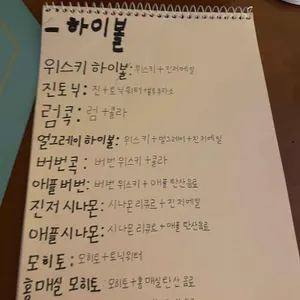 - 하이볼
위스키 하이볼: 위스키 + 진저에일
진토닉: 진 + 토닉워터
럼콕: 럼 + 콜라
얼그레이 하이볼: 위스키 + 얼그레이 + 진저에일
버번콕: 버번 위스키 + 콜라
애플버번: 버번 위스키 + 애플 탄산음료
진저 시나몬: 시나몬 리큐르 + 진저에일
애플시나몬: 시나몬 리큐르 + 애플 탄산음료
모히토: 모히토 + 토닉워터
홍매실 모히토: 모히토 + 홍매실 탄산음료